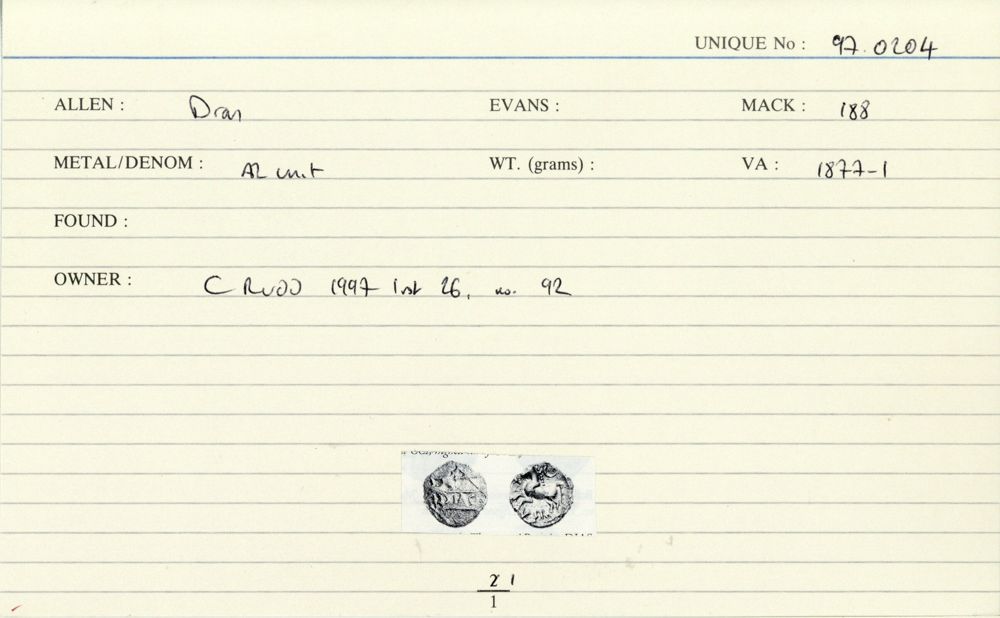 UNIQUE No : 97.0204
ALLEN : Dias EVANS : MACK : 188
METAL/DENOM : AR unit WT. (grams) : VA : 1877-1
FOUND :
OWNER : C RUDD 1997 list 26, no. 92
DIAS
2 1
1